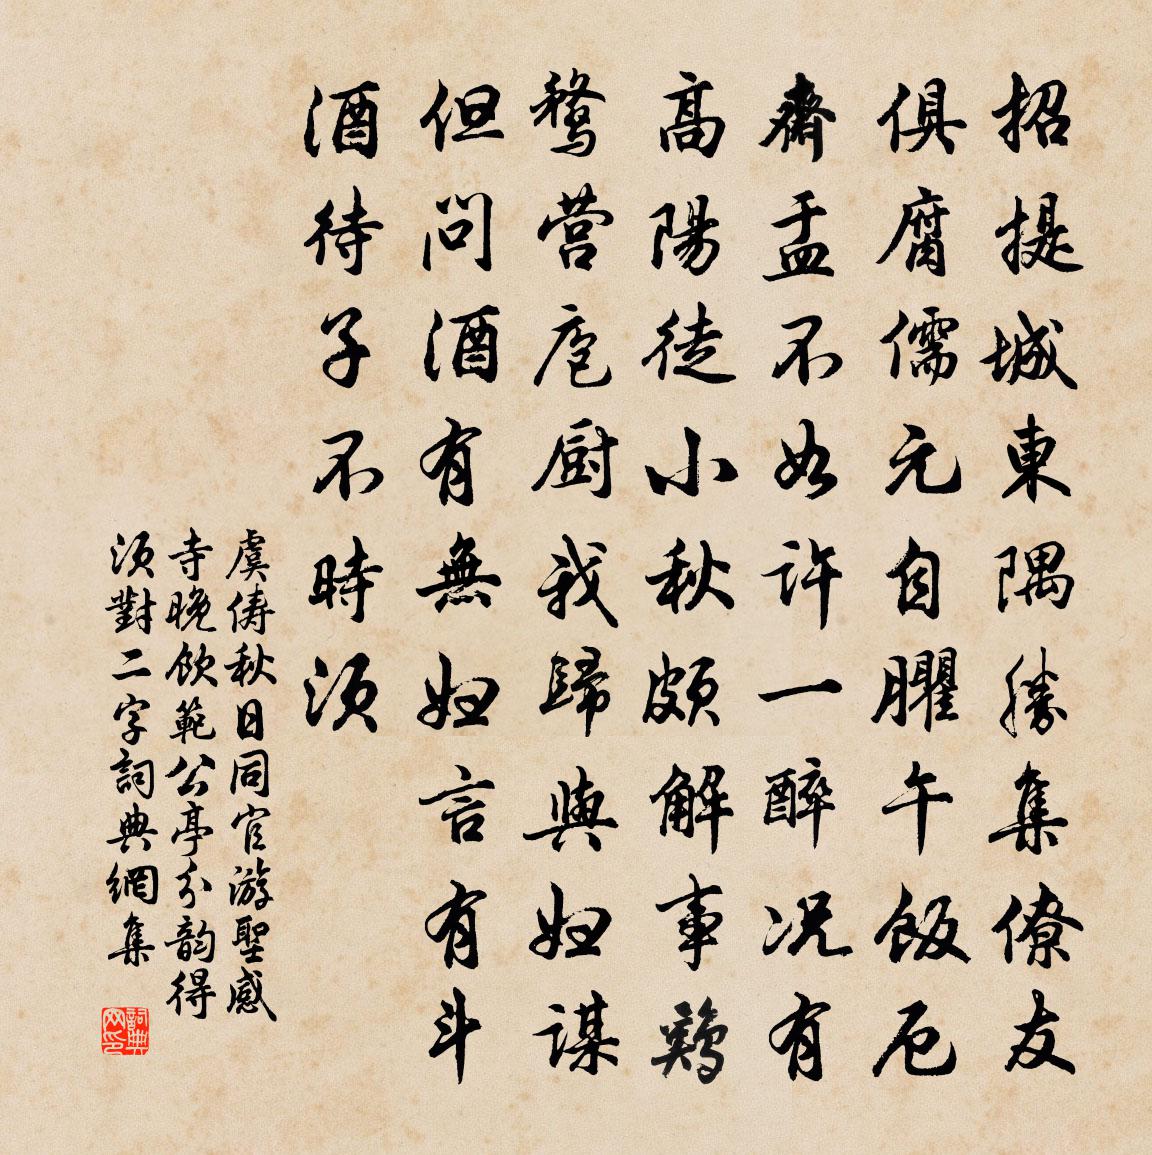 招提城東隅勝集僚友
俱腐儒元自臞午飯厄
齋盂不如許一醉況有
高陽徒小秋頗解事鶏
鶩营庖厨我歸與妇謀
但問酒有無妇言有斗
酒待子不時須
虞儔秋日同官游聖感
寺晚飲範公亭分韵得
須對二字詞典網集
詞典网印